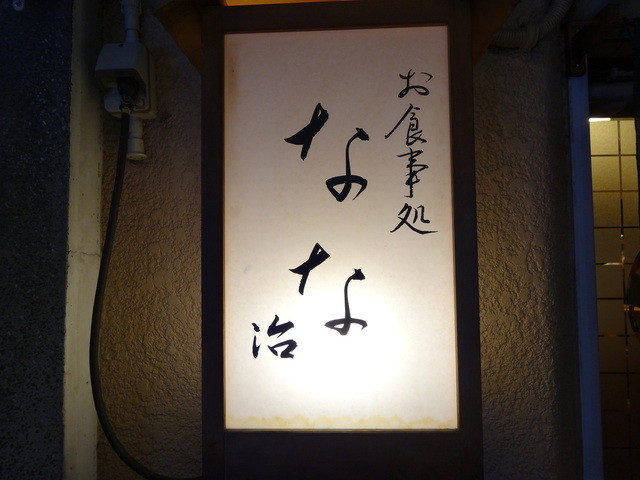 お食事処
なな
治